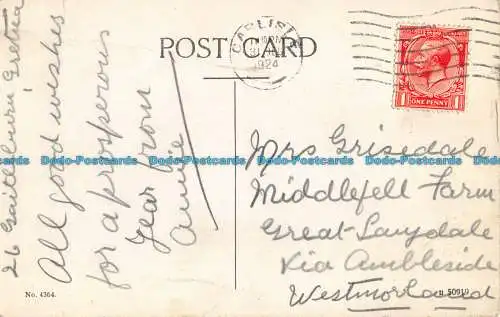 POST CARD
CARLISLE
1924
ONE PENNY
26
Gretna
All good wishes
for a prosperous
year from
Annie
Mrs Grisedale
Middlefell Farm
Great-Langdale
Via Ambleside
Westmorland
No. 4364.
Dodo-Postcards Dodo-Postcards Dodo-Postcards Dodo-Postcards